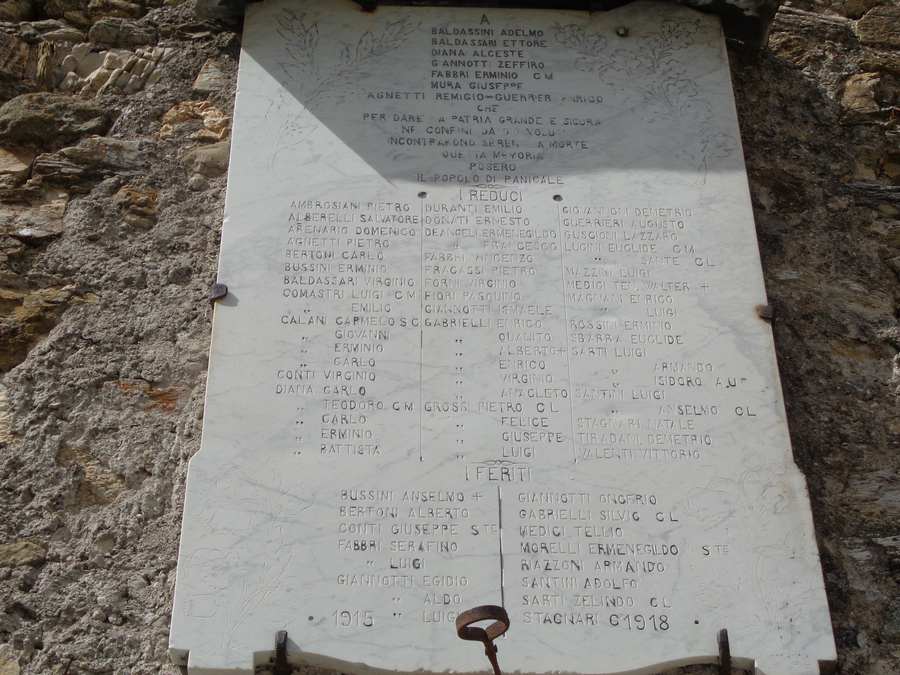 A
BALDASSINI ADELMO
BALDASSARI ETTORE
DIANA ALCESTE
GIANNOTTI ZEFFIRO
FABBRI ERMINIO C M
MURA GIUSEPPE
AGNETTI REMIGIO - GUERRIERI ENRICO
CHE
PER DARE A PATRIA GRANDE E SICURA
NE CONFINI DA
INCONTRARONO MORTE
MEMORIA
POSERO
IL POPOLO DI PANICALE
I REDUCI
AMBROSIANI PIETRO
ALBERELLI SALVATORE
ARENARIO DOMENICO
AGNETTI PIETRO
BERTONI CARLO
BUSSINI ERMINIO
BALDASSARI VIRGINIO
COMASTRI LUIGI C M
„ EMILIO
CALANI CARMELO S C
„ GIOVANNI
„ ERMINIO
„ CARLO
CONTI VIRGINIO
DIANA CARLO
„ TEODORO C M
„ CARLO
„ ERMINIO
„ BATTISTA
DURANTI EMILIO
DONATI ERNESTO
DEANGELI ERMENEGILDO
„ FRANCESCO
FABBRI VINCENZO
FRACASSI PIETRO
FORNI VIRGINIO
FIORI PASQUINO
GIANNOTTI ISMAELE
GABRIELLI ENRICO
„ QUALITO
„ ALBERTO +
„ ENRICO
„ VIRGINIO
„ ANACLETO
GROSSI PIETRO C L
„ FELICE
„ GIUSEPPE
„ LUIGI
GIOVANNONI DEMETRIO
GUERRIERI AUGUSTO
GUSCIONI LAZZARO
LUCINI EUCLIDE C M
„ SANTE C L
MAZZINI LUIGI
MEDICI TEN. VALTER +
MAGNANI ENRICO
„ LUIGI
ROSSINI ERMINIO
SBARRA EUCLIDE
SARTI LUIGI
„ ARMANDO
„ ISIDORO A U F
SANTINI LUIGI
„ ANSELMO C L
STAGNARI NATALE
TIRADANI DEMETRIO
VALENTI VITTORIO
I FERITI
BUSSINI ANSELMO +
BERTONI ALBERTO
CONTI GIUSEPPE S TE
FABBRI SERAFINO
„ LUIGI
GIANNOTTI EGIDIO
„ ALDO
„ LUIGI
GIANNOTTI ONOFRIO
GABRIELLI SILVIO C L
MEDICI TELLIO
MORELLI ERMENEGILDO S TE
RAZZONI ARMANDO
SANTINI ADOLFO
SARTI ZELINDO C L
STAGNARI G
1915
1918